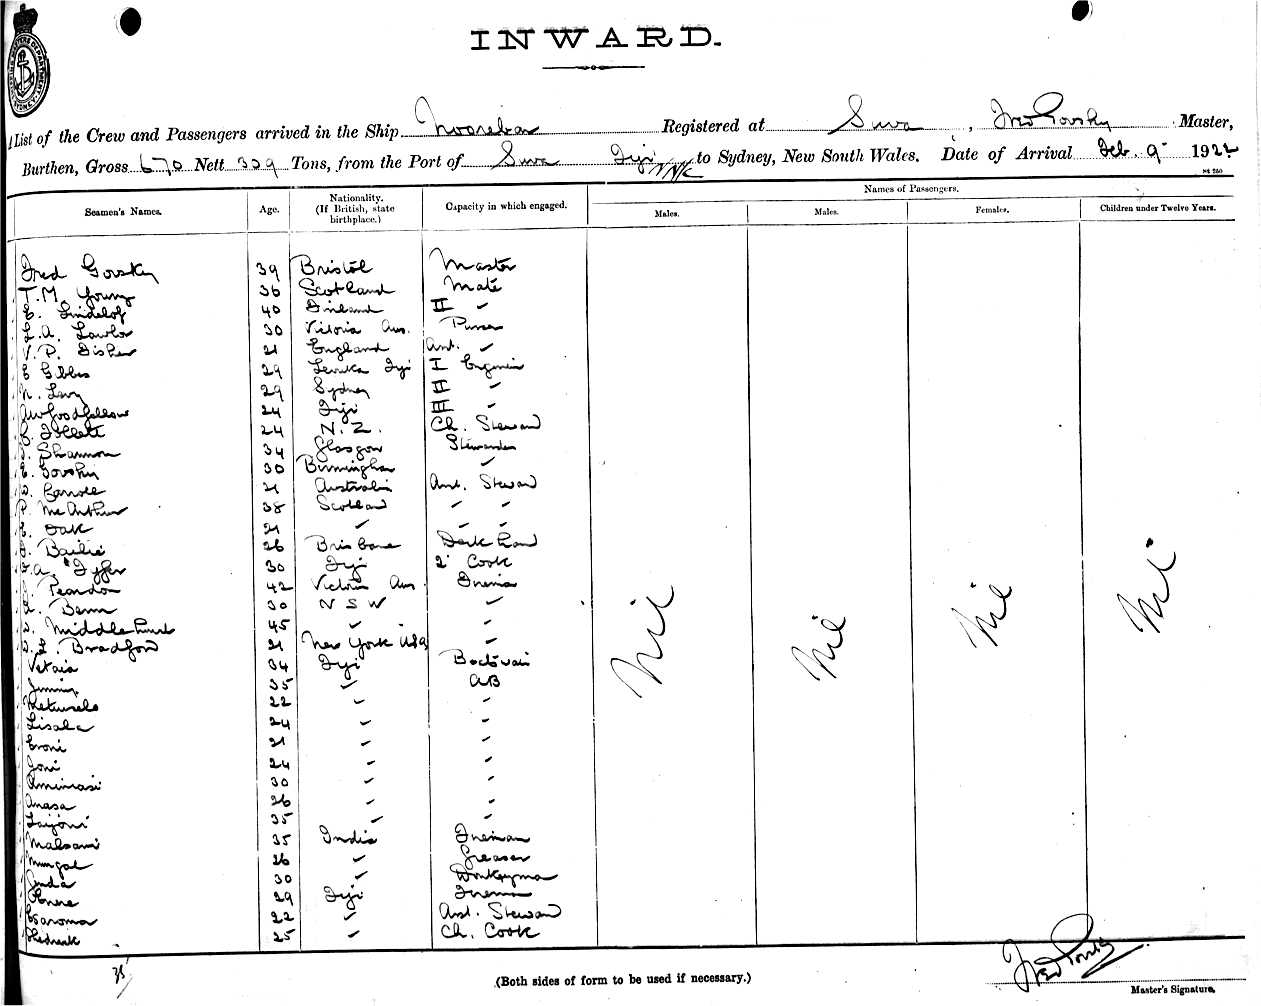 INWARD.
List of the Crew and Passengers arrived in the Ship Mooreba Registered at Suva, Fred Gorsky Master,
Burthen, Gross 670 Nett 329 Tons, from the Port of Suva Fiji to Sydney, New South Wales. Date of Arrival Feb. 9 1922
Names of Passengers.
Seamen's Names. Age. Nationality. (If British, state birthplace.) Capacity in which engaged. Males. Males. Females. Children under Twelve Years.
Fred Gorsky 39 Bristol Master
T. M. Young 36 Scotland Mate
E. Lindelof 40 Finland II "
L. A. Lawlor 30 Victoria Aus. Purser
V. P. Fisher 21 England Asst. "
E Gibbs 29 Levuka Fiji I Engineer
N. Levy 29 Sydney II "
A W Goodfellow 24 Fiji III "
Follett 24 N.Z. Ch. Steward
Shannon 34 Glasgow Stewardess
E. Gorsky 30 Birmingham "
Carroll 21 Australia Asst. Steward
P. McArthur 38 Scotland " "
E. Oak 21 " " "
Bailie 26 Brisbane Deck hand
A. Tyfer 30 Fiji 2 Cook
Reardon 42 Victoria Aus. Fireman
Benn 30 N S W "
Middlehurst 45 " "
Bradford 21 New York USA "
Vitaia 34 Fiji Boatswain
Jimmy 35 " AB
Metuisela 22 " "
Lisala 24 " "
Eroni 21 " "
Joni 24 " "
Aminiasi 30 " "
Anasa 26 " "
Laijoni 35 "
Malsami 35 India Fireman
Mungal 26 " Greaser
30 " Donkeyman
29 Fiji Fireman
Esaroma 22 " Asst. Steward
Shedrack 25 " Ch. Cook
Nil Nil Nil Nil
35
(Both sides of form to be used if necessary.)
Fred Gorsky
Master's Signature.